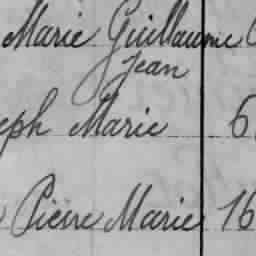 Marie Guillaume
Jean
eph Marie 6
Pierre Marie 16